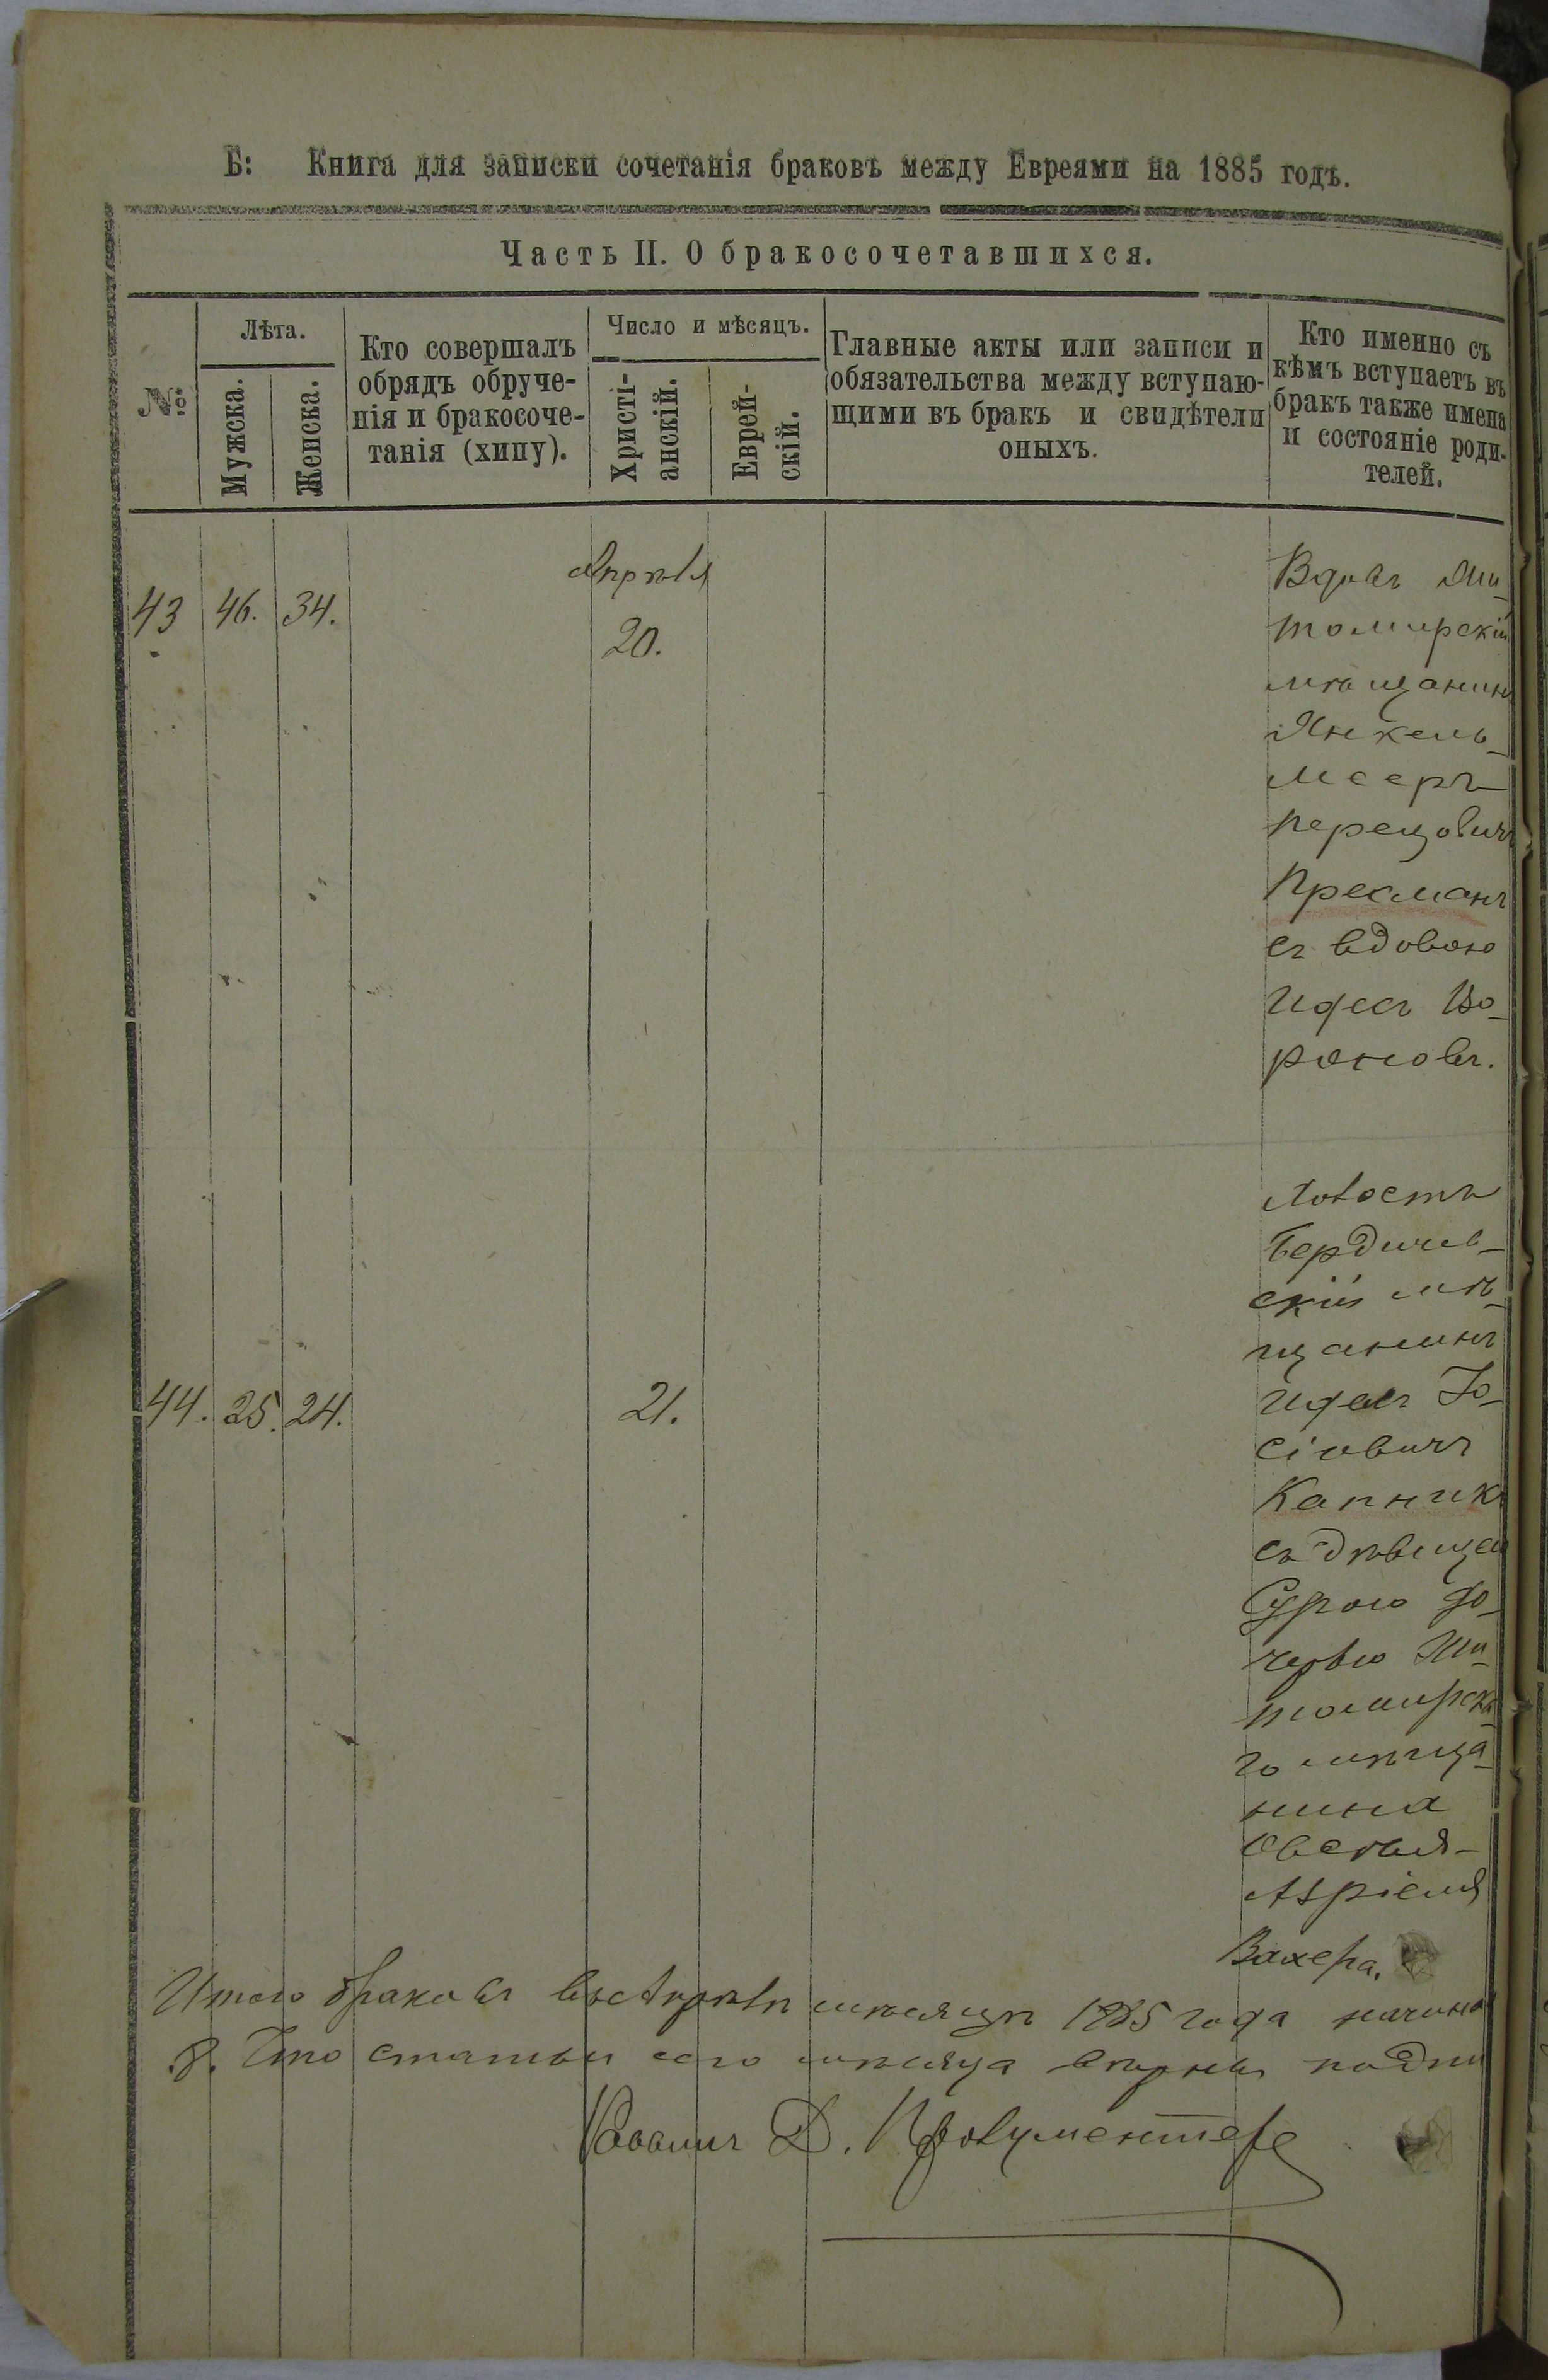 Б: Книга для записки сочетанія браковъ между Евреями на 1885 годъ.
Часть II. О бракосочетавшихся.
№
Лѣта.
Мужска.
Женска.
Кто совершалъ
обрядъ обруче-
нія и бракосоче-
танія (хипу).
Число и мѣсяцъ.
Христі-
анскій.
Еврей-
скій.
Главные акты или записи и
обязательства между вступаю-
щими въ бракъ и свидѣтели
оныхъ.
Кто именно съ
кѣмъ вступаетъ въ
бракъ также имена
и состояніе роди-
телей.
Апрѣля
43 46. 34. 20.
Вдовъ Жи-
томирскій
мѣщанинъ
Янкель-
Мееръ
Перецовичъ
съ вдовою
44. 25. 24. 21.
Холостъ
Бердичев-
скій мѣ-
щанинъ
Іо-
сіовичъ
Капникъ
съ дѣвицею
Сурою до-
черью Жи-
томирска-
го мѣща-
нина
Вахера.
Итого браковъ въ Апрѣлѣ мѣсяцѣ 1885 года
8. Что статьи сего мѣсяца вѣрны
Раввинъ Д.